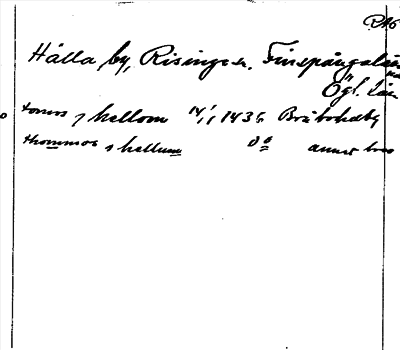 RAÖ
Hälla by, Risinge sn. Finspångalän
Ögl. län
tomos j hellom 14/1 1436 Bråboheby
thommos j hellum do annat brev